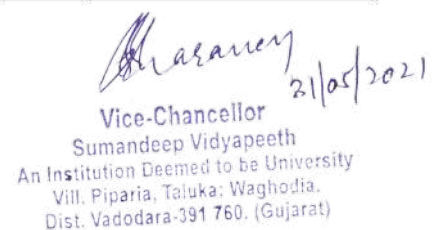 31/05/2021
Vice-Chancellor
Sumandeep Vidyapeeth
An Institution Deemed to be University
Vill. Piparia, Taluka: Waghodia.
Dist. Vadodara-391 760. (Gujarat)